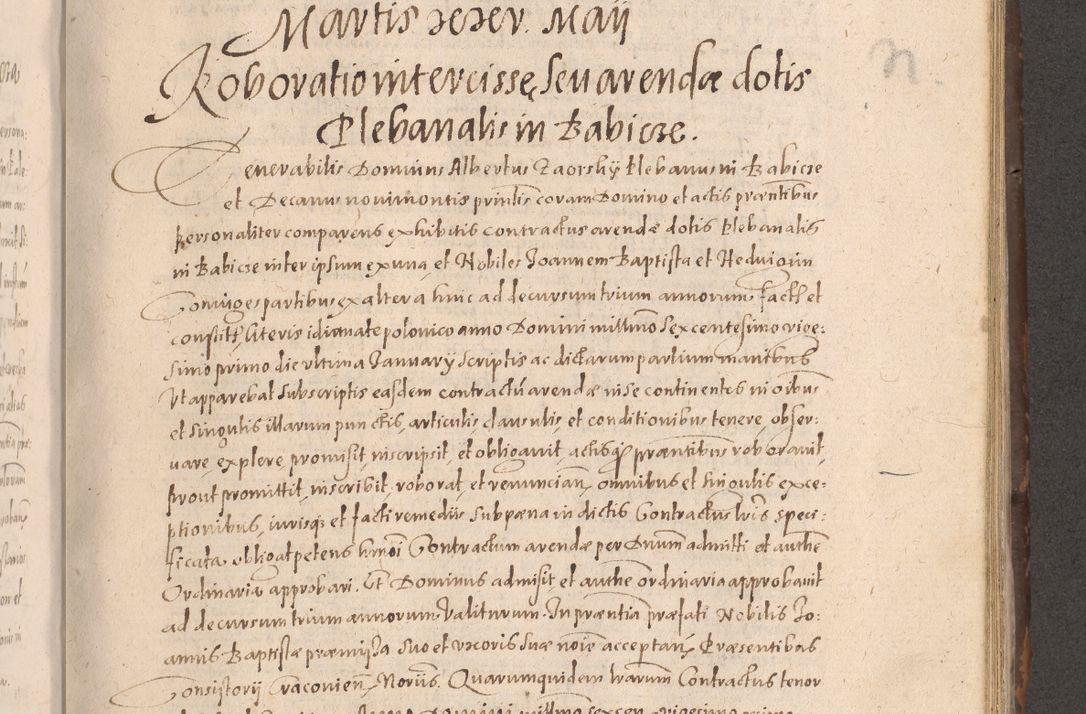 Martis xxv. Maii
Roboratio intercissę, seu arendæ dotis
Plebanalis in Babicze.
Venerabilis Dominus Albertus Zaorsky Plebanus in Babicze
et Decanus novimontis prīntis coram Domino et actis præntibus
personaliter comparens exhibitis contractus arendæ dotis Plebanalis
in Babicze inter ipsum ex una, et Nobiles Joannem Baptista et Hedvigim
Coniuges partibus ex altera hinc ad decursum trium annorum, fact et
constit, literis idiomate polonico anno Domini millmo Sexcentesimo vige:
simo primo die ultima January scriptis ac dictarum partium manibus
Vt apparebat subscriptis easdem contractū arendæ in se continentes in oibus
et singulis illarum punctis, articulis clausulis, et conditionibus tenere, obser:
uare, explere promisit, inscripsit, et obligavit, actisq præntibus roboravit,
prout promittit, inscribit, roborat, et renuncian, omnibus et singulis exce:
ptionibus, iurisq et facti remediis sub pæna in dictis Contractus lris speci:
ficata, obligat petens hmōi Contractum arendæ per Dnum admitti et authe
Ordinaria approbari. Et Dominus admisit et authe ordinaria approbavit
ad decursum trium annorum valiturum. In præntia præfati Nobilis Jo:
annis Baptistæ præmissa suo et uxoris suæ noīe acceptan, Præsentibus
Consistorij Cracovien, Noriis. Quarumquidem lrarum Contractus tenor
Anno Domini millmo sexcen vigesimo primo
n.